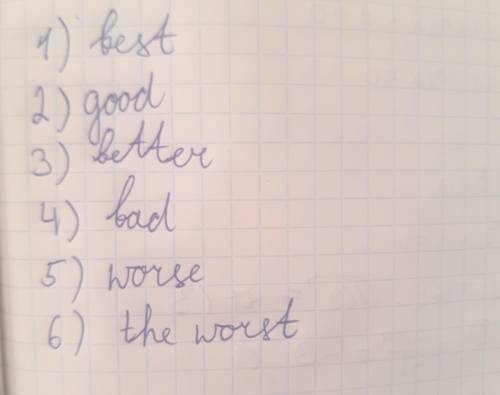 1) best
2) good
3) better
4) bad
5) worse
6) the worst